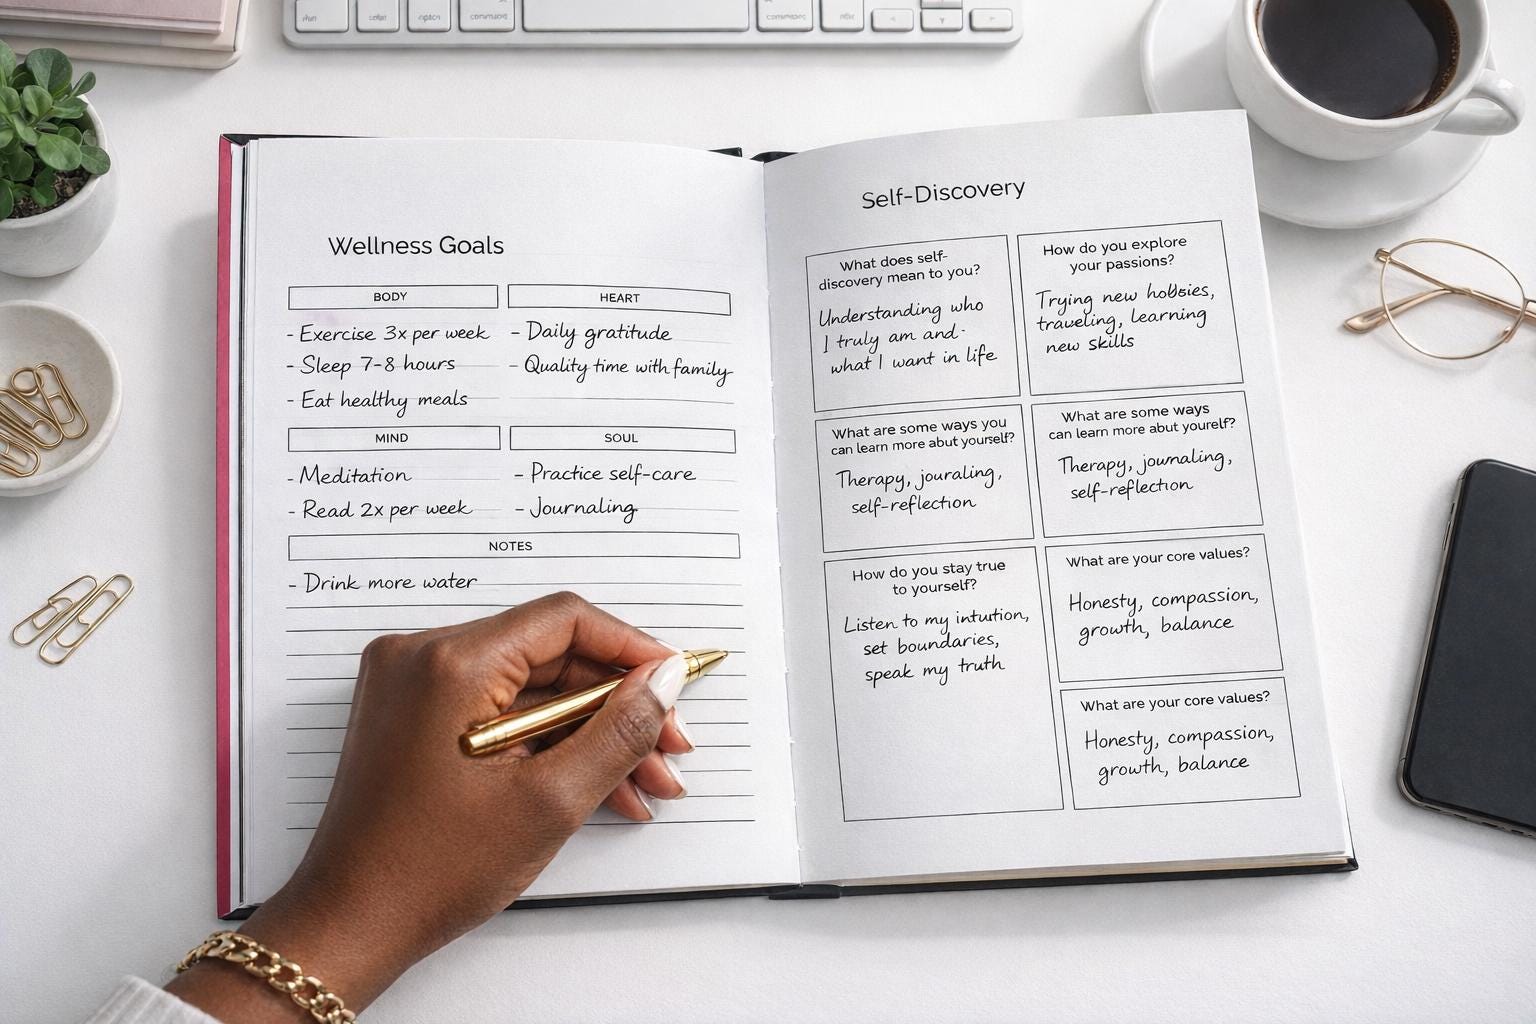 Wellness Goals
BODY
- Exercise 3x per week
- Sleep 7-8 hours
- Eat healthy meals
HEART
- Daily gratitude
- Quality time with family
MIND
- Meditation
- Read 2x per week
SOUL
- Practice self-care
- Journaling
NOTES
- Drink more water
Self-Discovery
What does self-
discovery mean to you?
Understanding who
I truly am and
what I want in life
How do you explore
your passions?
Trying new hobsies,
traveling, learning
new skills
What are some ways you
can learn more abut yourself?
Therapy, jouraling,
self-reflection
What are some ways
can learn more abut yourelf?
Therapy, journaling,
self-reflection
How do you stay true
to yourself?
Listen to my intuition,
set boundaries,
speak my truth
What are your core values?
Honesty, compassion,
growth, balance
What are your core values?
Honesty, compassion,
growth, balance